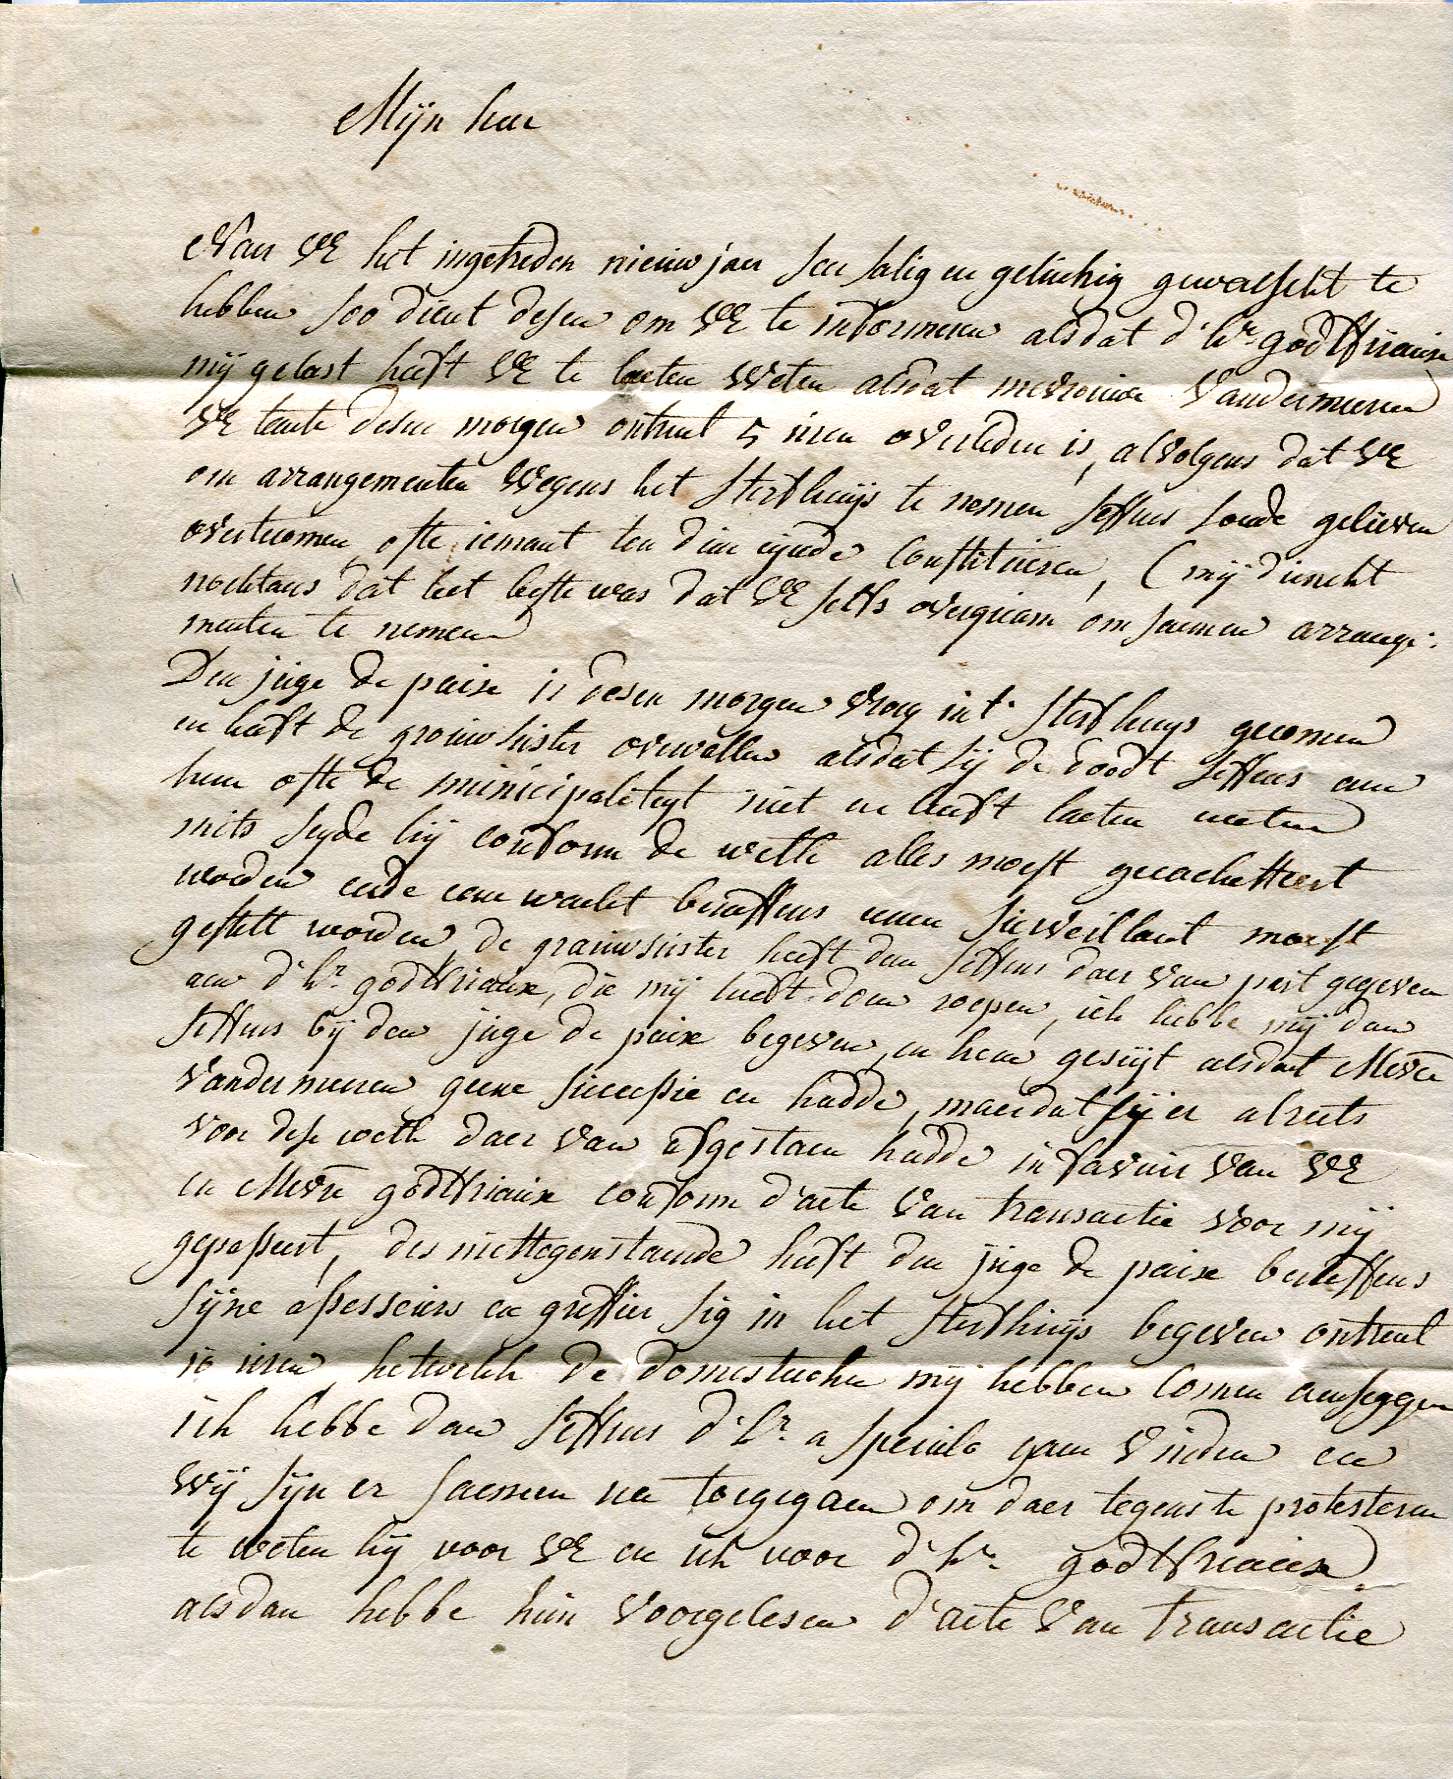 Mijn heer
Naer VE het ingetreden nieuwjaer seer salig en geluckig gewenscht te
hebben soo dient desen om VE te informeren alsdat d'hr. godtfriaux
mij gelast heeft VE te laeten weten alsdat mevrouwe Vandermeeren
VE tante desen morgen ontrent 5 uren overleden is, alvolgens dat VE
om arrangementen wegens het sterfhuijs te nemen seffens soude gelieven
overtecomen ofte iemant ten dien eijnde constitueren, (mij dunckt
nochtans dat het beste was dat VE selfs overquam om saemen arrange-
menten te nemen)
Den juge de paix is desen morgen vroeg in 't sterfhuys gecomen
en heeft de grouwsuster overvallen alsdat sij de doodt seffens aen
hem ofte de municipaliteyt niet en heeft laeten weten
mits seyde hij conform de weth alles moest gecachetteert
worden ende eene wacht beneffens eenen surveillant moest
gestelt worden, de grauwsuster heeft dan seffens daer van part gegeven
aen d'hr. godtfriaux, die mij heeft doen roepen, ich hebbe mij dan
seffens bij den juge de paix begeven en hem geseijt alsdat Mevre
Vandermeeren geene successie en hadde, maer dat sij er alreets
voor dese weth daer van afgestaen hadde in faveur van VE
en Mevre godtfriaux conform d'acte van transactie voor mij
gepasseert, des niettegenstaende heeft den juge de paix beneffens
sijne assesseurs en greffier sig in het sterfhuijs begeven ontrent
10 uren, hetwelck de domestucken mij hebben comen aenseggen
ich hebbe dan seffens d'hr. a speculo gaen vinden en
wij sijn er saemen nae toegegaen om daer tegens te protesteren
te weten hij voor VE en ich voor d'hr. godtfriaux
alsdan hebbe hun voorgelesen d'acte van transactie